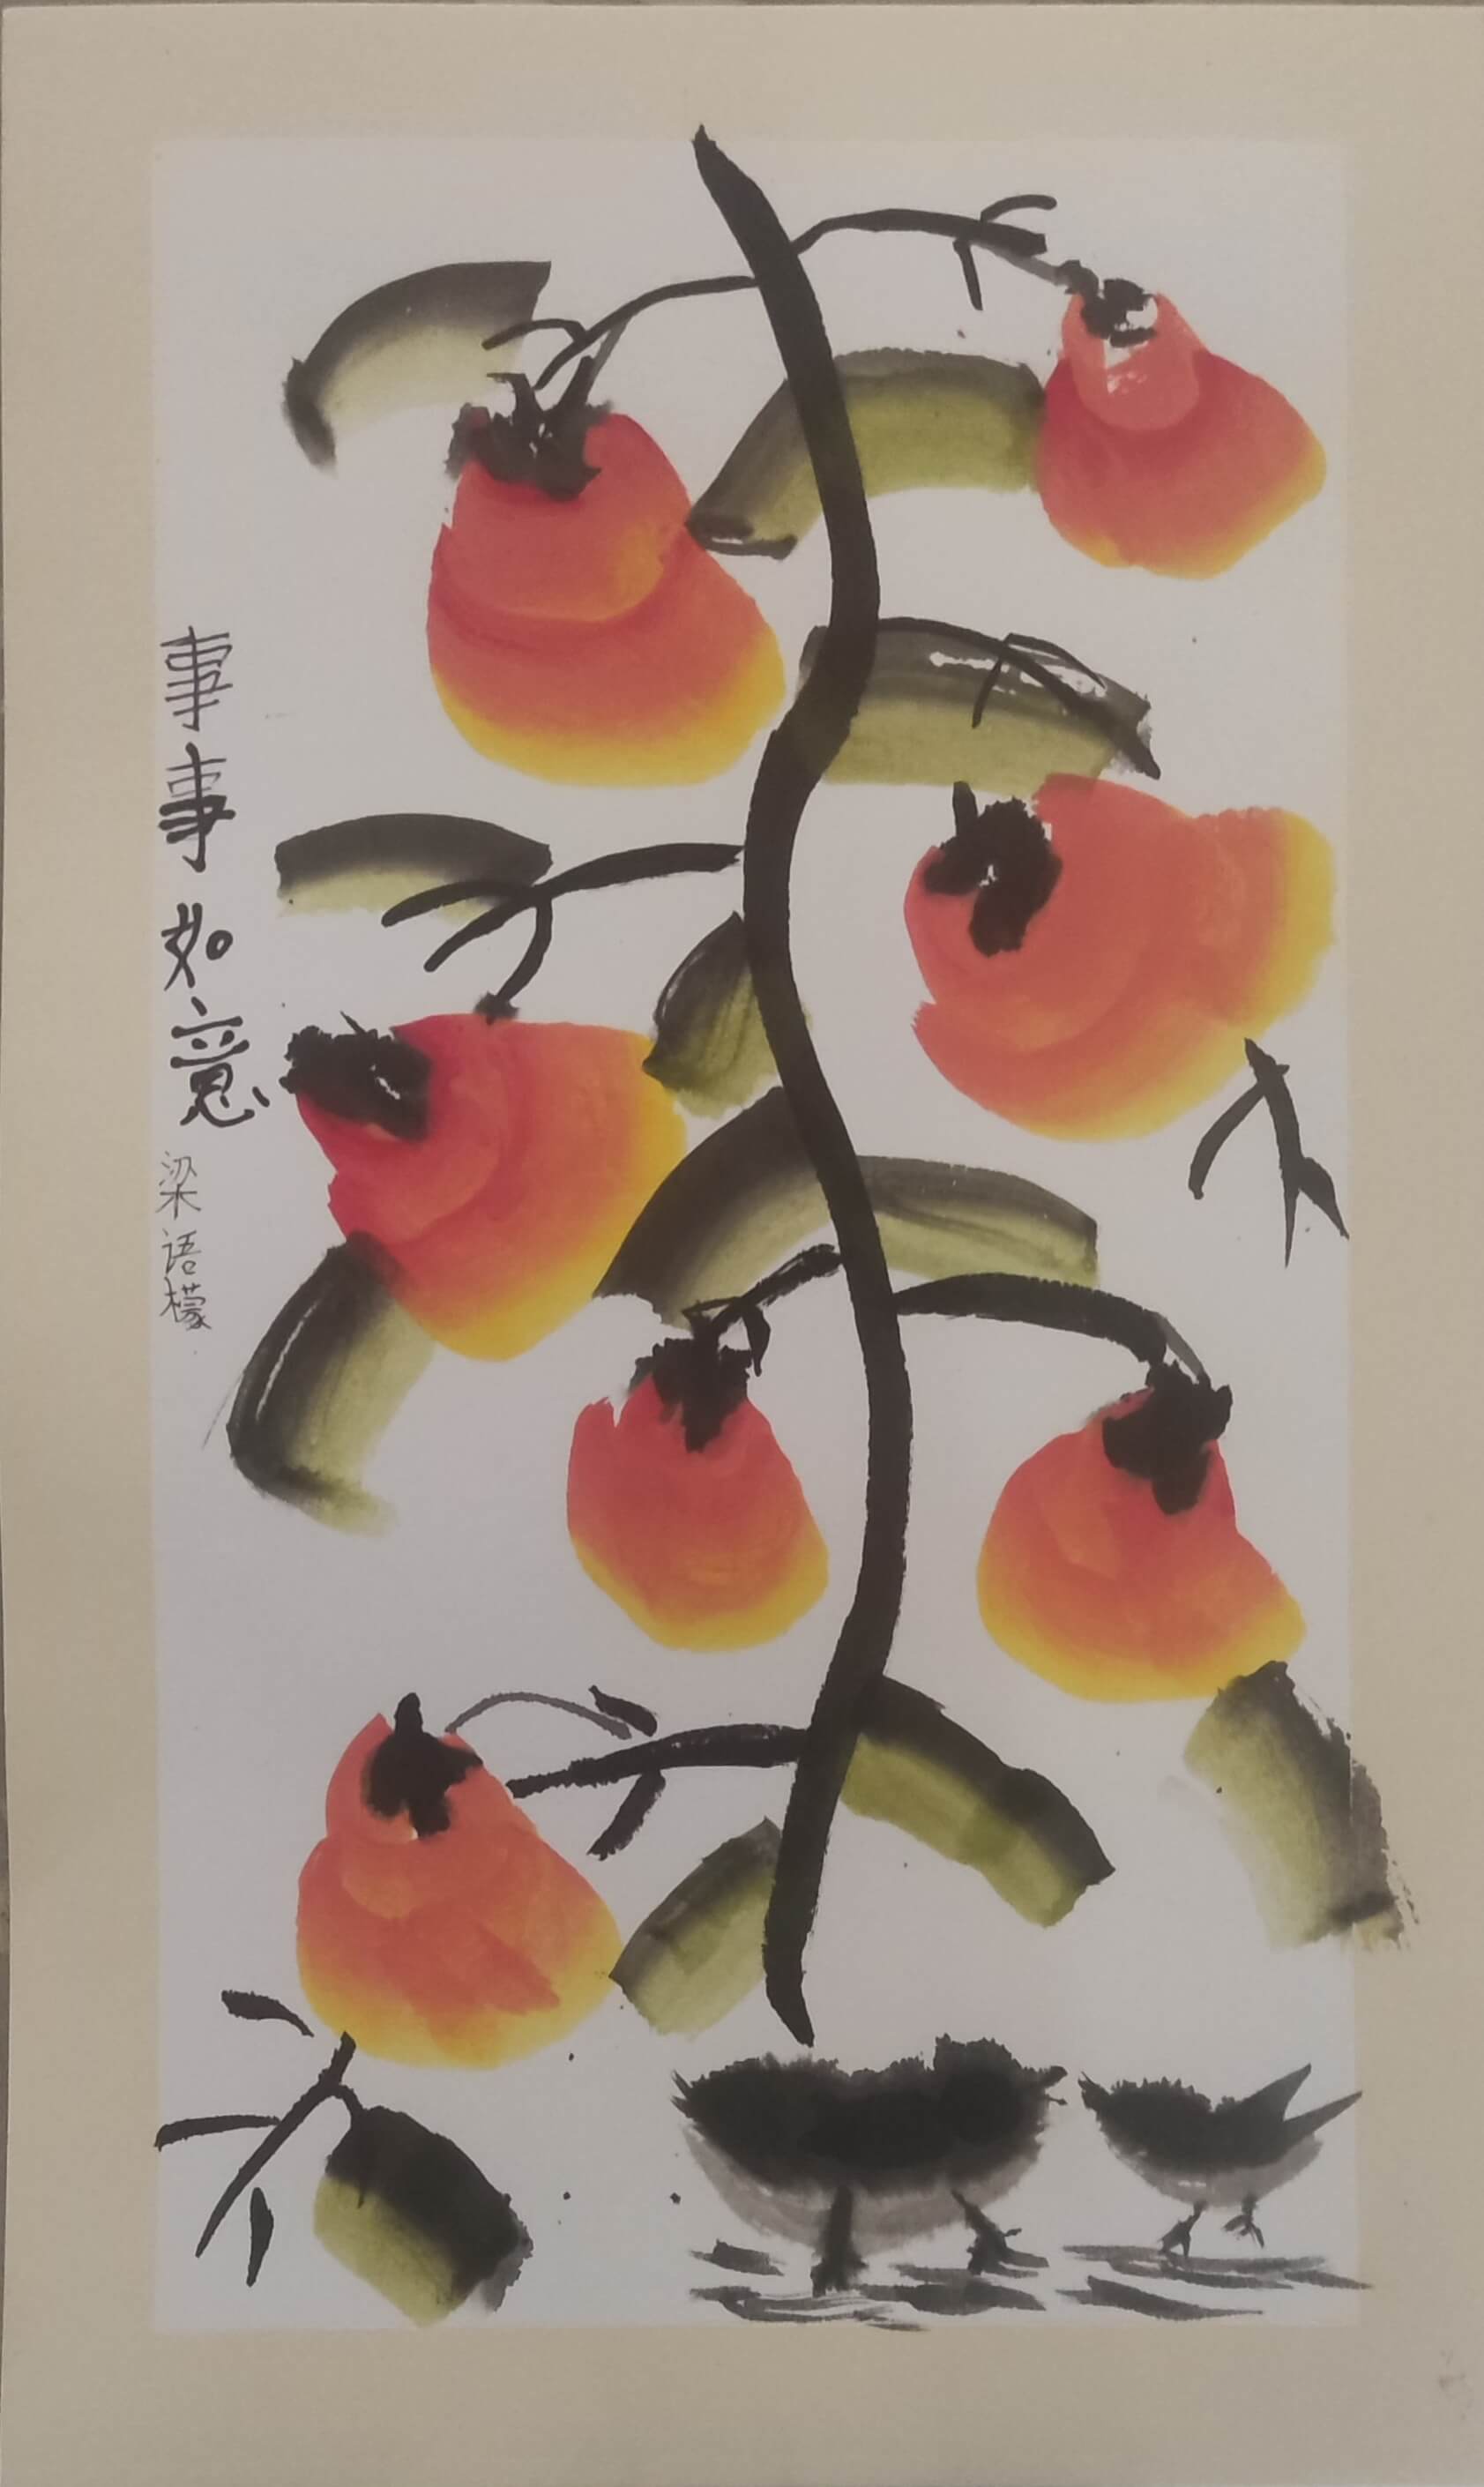 事事如意
梁语檬